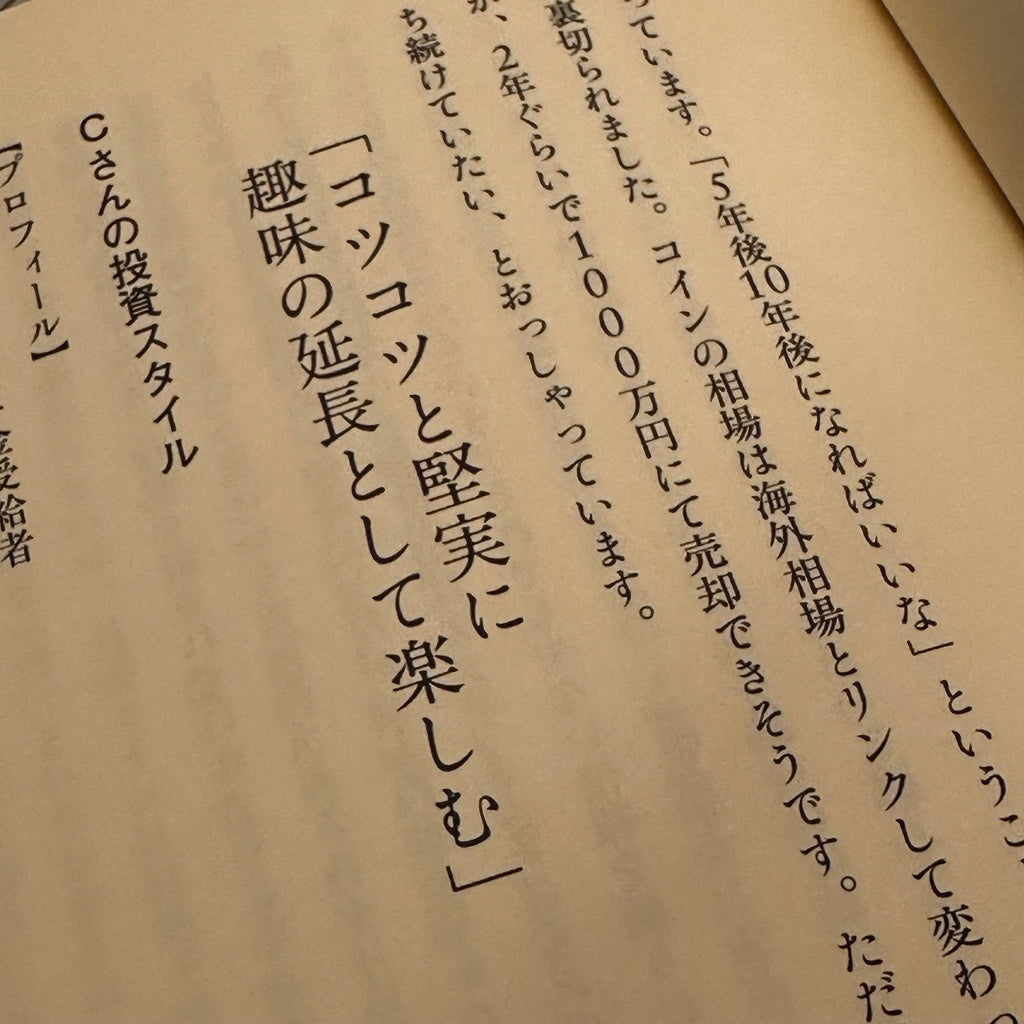 っています。「5年後10年後になればいいな」というこ
裏切られました。コインの相場は海外相場とリンクして変わ
が、2年ぐらいで1000万円にて売却できそうです。ただ
ち続けていたい、とおっしゃっています。
「コツコツと堅実に
趣味の延長として楽しむ」
Cさんの投資スタイル
【プロフィール】
金受給者